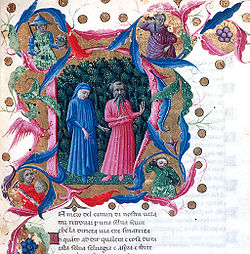 mezo del camin di nostra uita
mi ritrouai p una selua
che la diricta uia era smarrita
quanto adir qualera e cosa dura
esta selua seluagia e aspra e forte